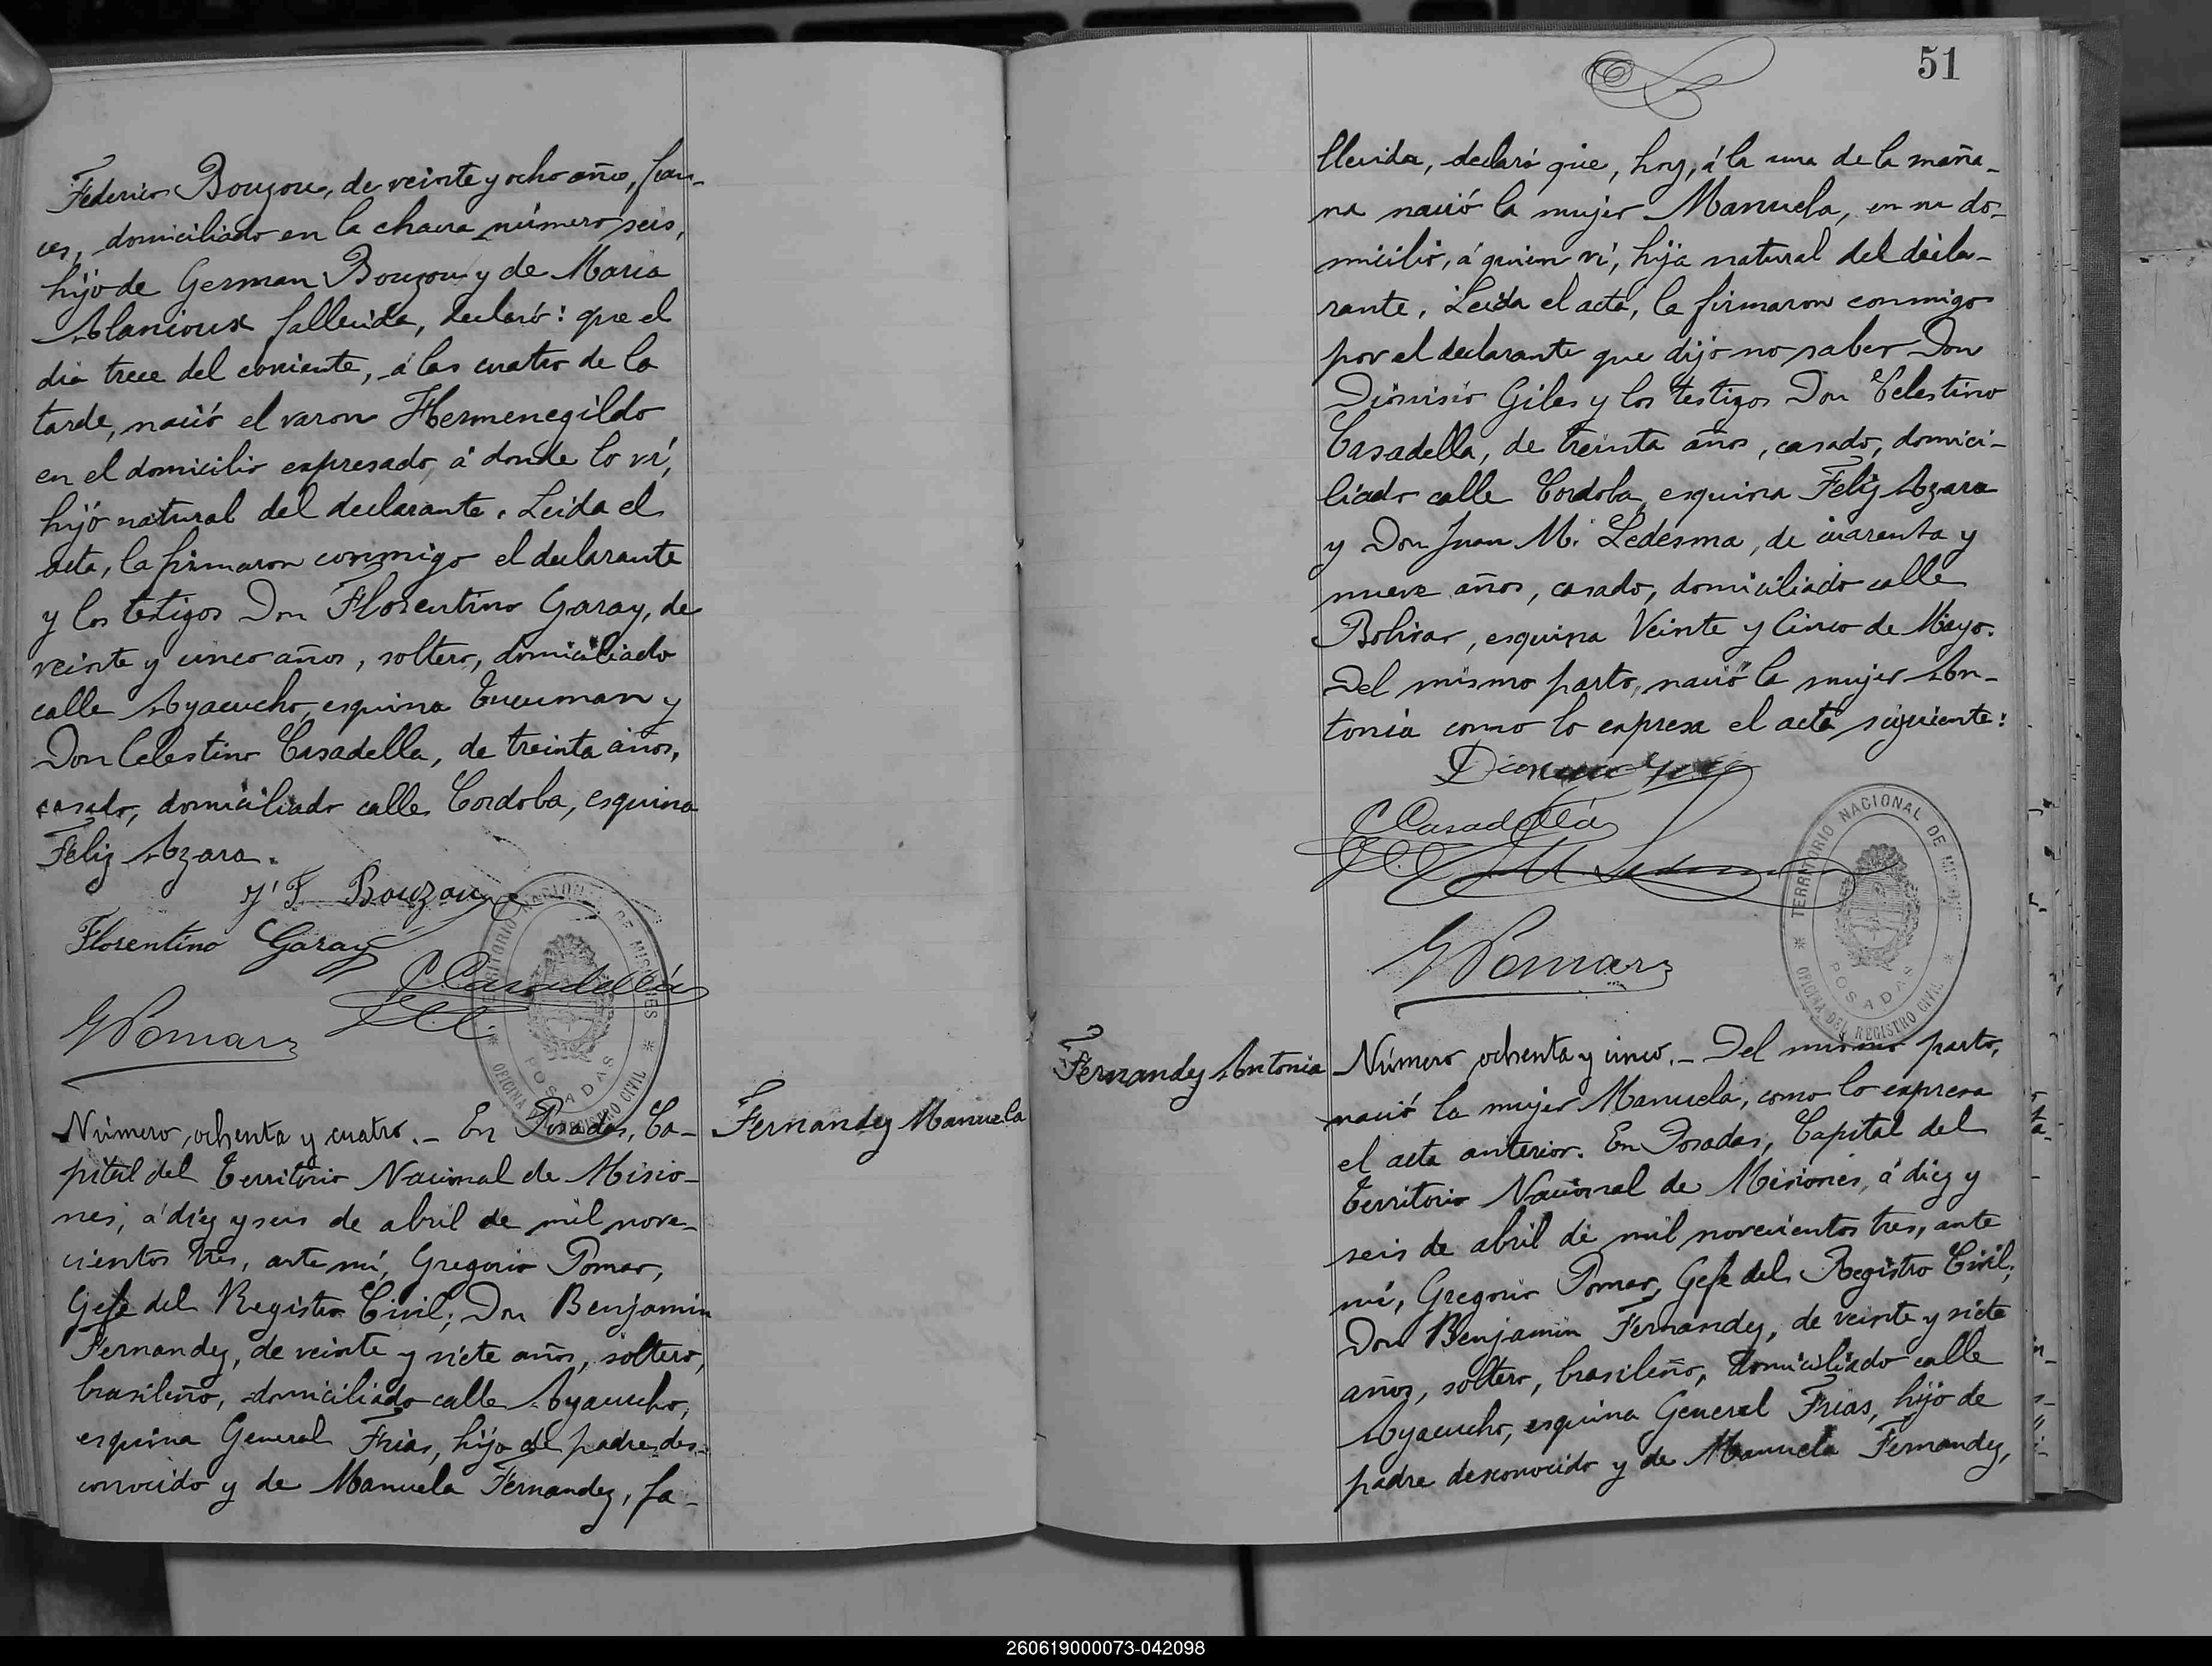 Federico Bouzou, de veinte y ocho años, fran-
ces, domiciliado en la chacra número seis,
hijo de German Bouzou y de Maria
Alanioux fallecida, declaró: que el
dia trece del corriente, á las cuatro de la
tarde, nació el varon Hermenegildo
en el domicilio expresado, á donde lo ví,
hijo natural del declarante. Leida el
acta, la firmaron conmigo el declarante
y los testigos Don Florentino Garay, de
veinte y cinco años, soltero, domiciliado
calle Ayacucho, esquina Tucuman y
Don Celestino Casadella, de treinta años,
casado, domiciliado calle Cordoba, esquina
Feliz Azara.
F. Bouzou
Florentino Garay
C Casadellá
G Pomar
TERRITORIO NACIONAL DE MISIONES
POSADAS
OFICINA DEL REGISTRO CIVIL
Número ochenta y cuatro.- En Posadas, Ca-
pital del Territorio Nacional de Misio-
nes, á diez y seis de abril de mil nove-
cientos tres, ante mí, Gregorio Pomar,
Gefe del Registro Civil; Don Benjamin
Fernandez, de veinte y siete años, soltero,
brasileño, domiciliado calle Ayacucho,
esquina General Frias, hijo de padre des-
conocido y de Manuela Fernandez, fa-
Fernandez Manuela
51
llecida, declaró que, hoy, á la una de la maña-
na nació la mujer Manuela, en su do-
micilio, á quien ví, hija natural del decla-
rante. Leida el acta, la firmaron conmigo
por el declarante que dijo no saber Don
Dionisio Giles y los testigos Don Celestino
Casadella, de treinta años, casado, domici-
liado calle Cordoba, esquina Feliz Azara
y Don Juan M. Ledesma, de cuarenta y
nueve años, casado, domiciliado calle
Bolivar, esquina Veinte y Cinco de Mayo.
Del mismo parto, nació la mujer An-
tonia como lo expresa el acta siguiente:
Dionisio
C Casadellá
M Ledesma
G Pomar
TERRITORIO NACIONAL DE MISIONES
POSADAS
OFICINA DEL REGISTRO CIVIL
Fernandez Antonia
Número ochenta y cinco.- Del mismo parto,
nació la mujer Manuela, como lo expresa
el acta anterior. En Posadas, Capital del
Territorio Nacional de Misiones, á diez y
seis de abril de mil novecientos tres, ante
mí, Gregorio Pomar, Gefe del Registro Civil;
Don Benjamin Fernandez, de veinte y siete
años, soltero, brasileño, domiciliado calle
Ayacucho, esquina General Frias, hijo de
padre desconocido y de Manuela Fernandez,
260619000073-042098